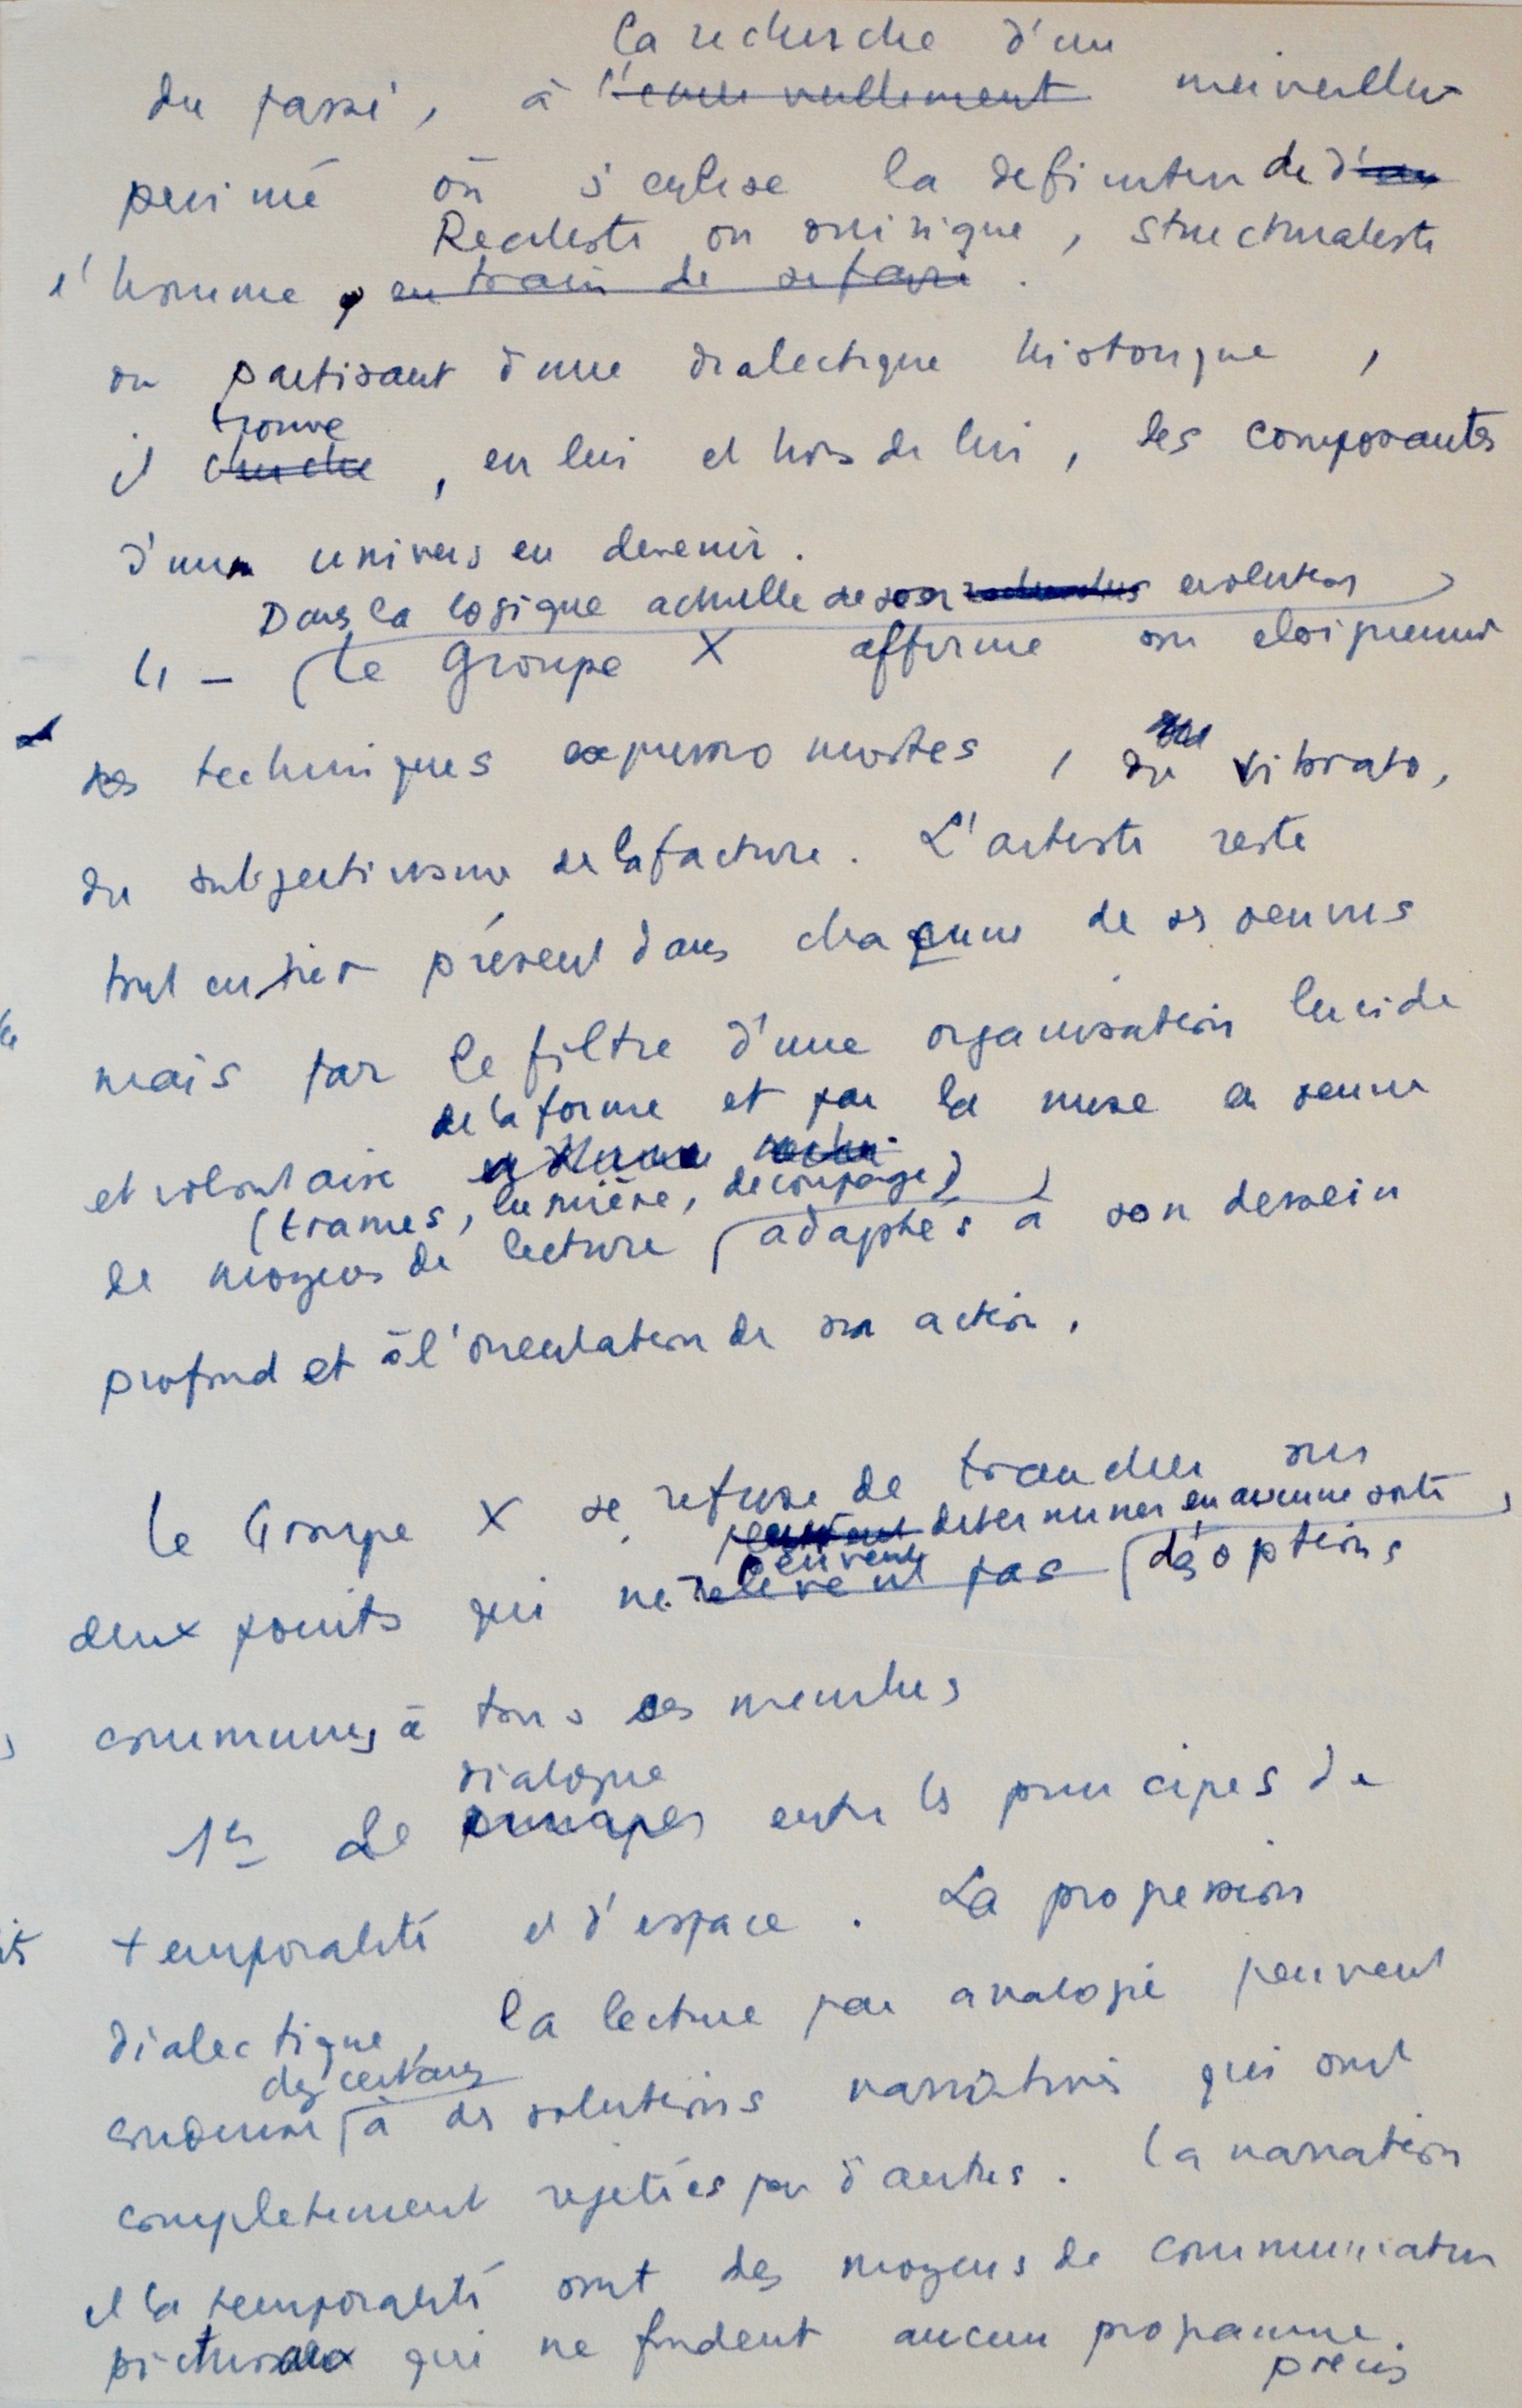 la recherche d'un
du passé, à l'émerveillement merveilleux
perimé où s'enlise la definition de d'un
Realiste ou onirique, structuraliste
l'homme, en train de se faire.
ou partisant d'une dialectique historique,
trouve
il cherche, en lui et hors de lui, les composantes
d'un univers en devenir.
Dans la logique actuelle de son recherches evolution
4 - Le Groupe X affirme son eloignement
des techniques expressionnistes, du vibrato,
du subjectivisme de la facture. L'artiste reste
tout entier présent dans chacune de ses oeuvres
mais par le filtre d'une organisation lucide
de la forme et par la mise en oeuvre
et volontaire
(trames, lumière, decoupage)
de moyens de lecture adaptés à son dessein
profond et à l'orientation de son action.
Le Groupe X se refuse de trancher sur
peuvent determiner en aucune sorte
peuvent
deux points qui ne relèvent pas des options
communes à tous ses membres
dialogue
1er Le principes entre les principes de
temporalité et d'espace. La progression
dialectique, la lecture par analogie peuvent
des certains
conduire à des solutions narratives qui sont
completement rejetées par d'autres. La narration
et la temporalité sont des moyens de communication
picturaux qui ne fondent aucun programme.
précis